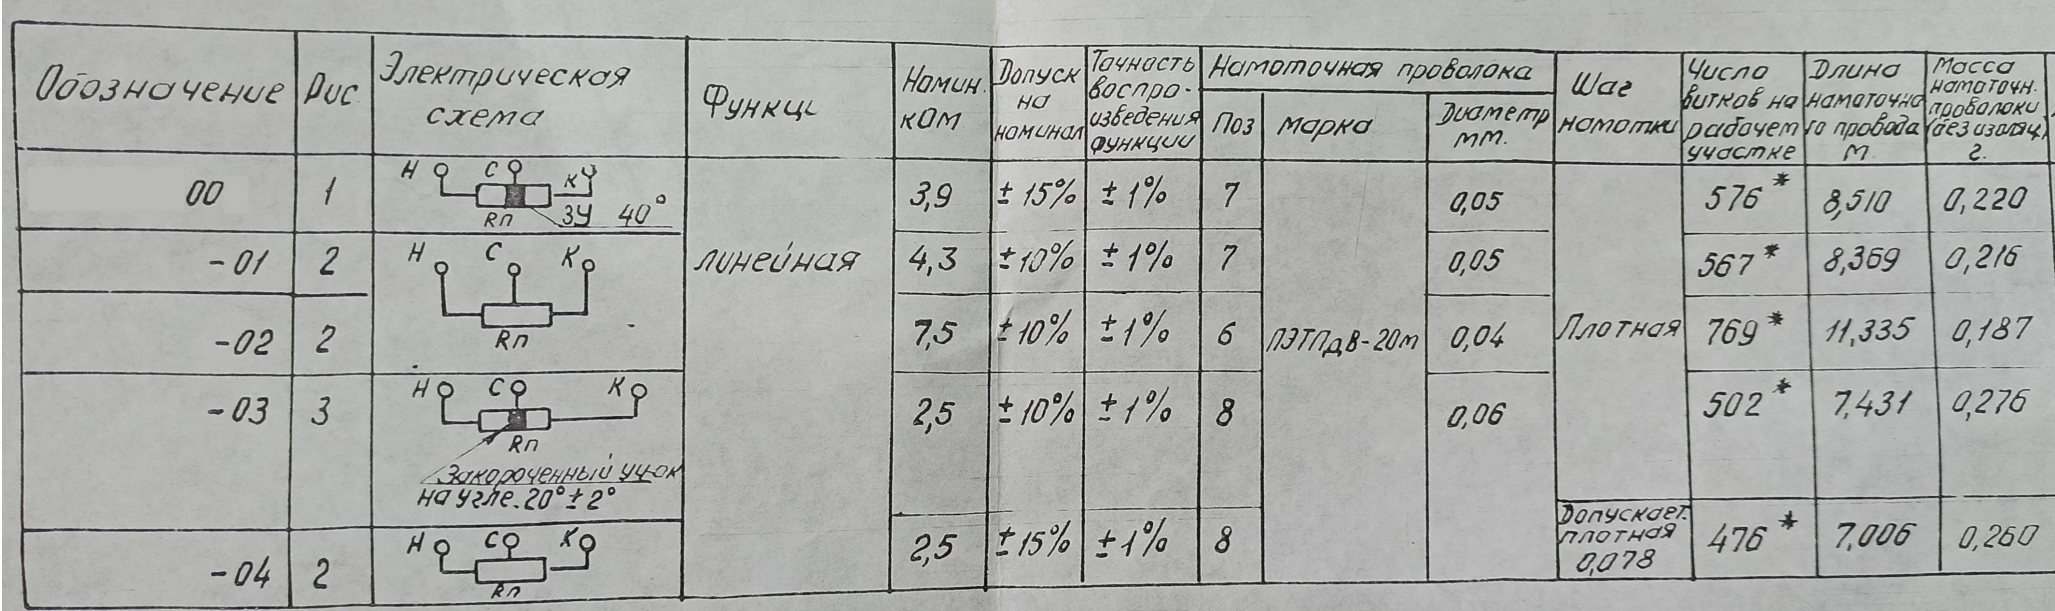 Обозначение
Рис
Электрическая
схема
Функци
Номин.
кОм
Допуск
на
номинал
Точность
воспро-
изведения
функции
Намоточная проволока
Поз
марка
Диаметр
мм.
Шаг
намотки
Число
витков на
рабочем
участке
Длина
намоточно
го провода
М
Масса
намоточн.
проволоки
(без изоляц.)
г.
00
1
Н С К
Rп
ЗУ 40°
3,9
± 15%
± 1%
7
0,05
576*
8,510
0,220
-01
2
Н С К
Rп
линейная
4,3
±10%
± 1%
7
0,05
567*
8,369
0,216
-02
2
7,5
±10%
±1%
6
ПЭТПдВ-20м
0,04
Плотная
769*
11,335
0,187
-03
3
Н С К
Rп
Закороченный уч-ок
на угле.20°±2°
2,5
±10%
±1%
8
0,06
502*
7,431
0,276
-04
2
Н С К
Rп
2,5
±15%
±1%
8
Допускает.
плотная
0,078
476*
7,006
0,260